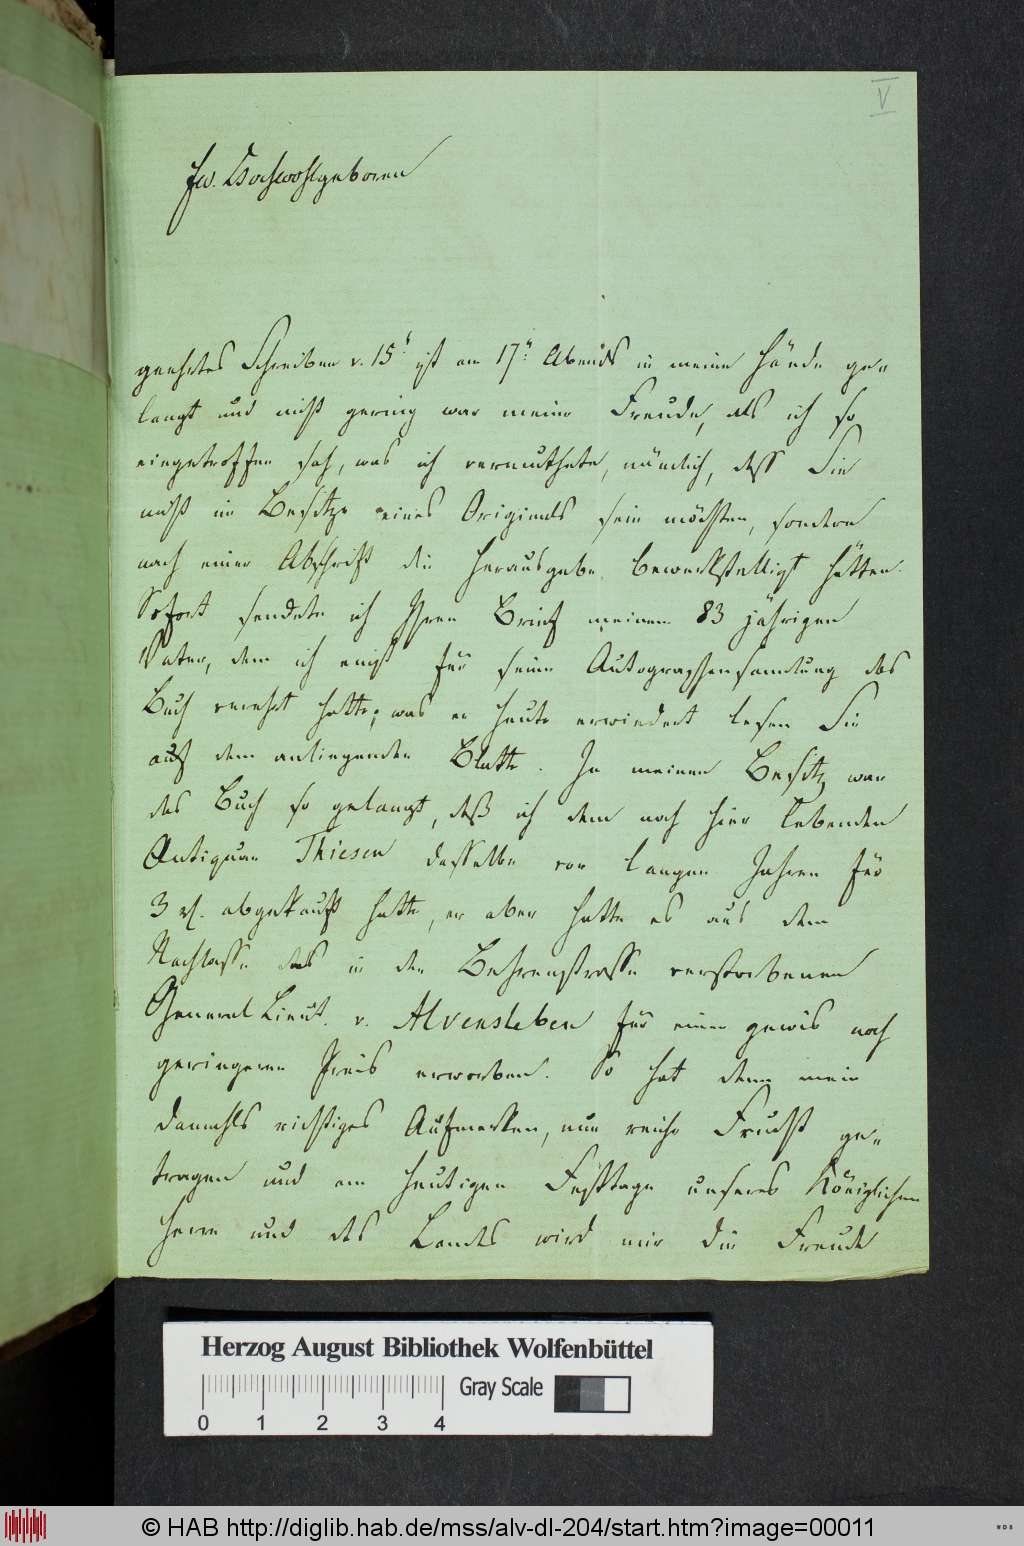 V
Ew. Hochwohlgeboren
geehrtes Schreiben v. 15t. ist am 17t. Abends in meine Hände ge-
langt und nicht gering war meine Freude, als ich so
eingetroffen sah, was ich vermuthete, nämlich, dass Sie
nicht im Besitze eines Originals sein möchten, sondern
nach einer Abschrift die Herausgabe bewerkstelligt hätten.
Sofort sendete ich Ihren Brief meinem 83 jährigen
Vater, dem ich einst für seine Autographensammlung das
Buch verehrt hatte; was er heute erwiedert lesen Sie
auf dem anliegenden Blatte. In meinen Besitz war
das Buch so gelangt, daß ich dem noch hier lebenden
Antiquar Thiesen dasselbe vor langen Jahren für
3 rl. abgekauft hatte, er aber hatte es aus dem
Nachlasse des in der Behrenstrasse verstorbenen
General Lieut. v. Alvensleben für einen gewis noch
geringeren Preis erworben. So hat denn mein
damahls richtiges Aufmerken, nun reiche Frucht ge-
tragen und am heutigen Festtage unseres Königlichen
Herrn und des Landes wird mir die Freude
Herzog August Bibliothek Wolfenbüttel
0 1 2 3 4 Gray Scale
© HAB http://diglib.hab.de/mss/alv-dl-204/start.htm?image=00011